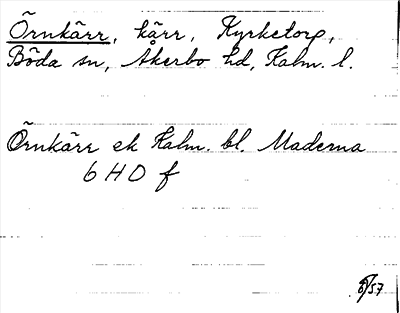 Örnkärr, kärr, Kyrketorp,
Böda sn, Åkerbo hd, Kalm. l.
Örnkärr ek Kalm. bl. Maderna
6 H D f
/57